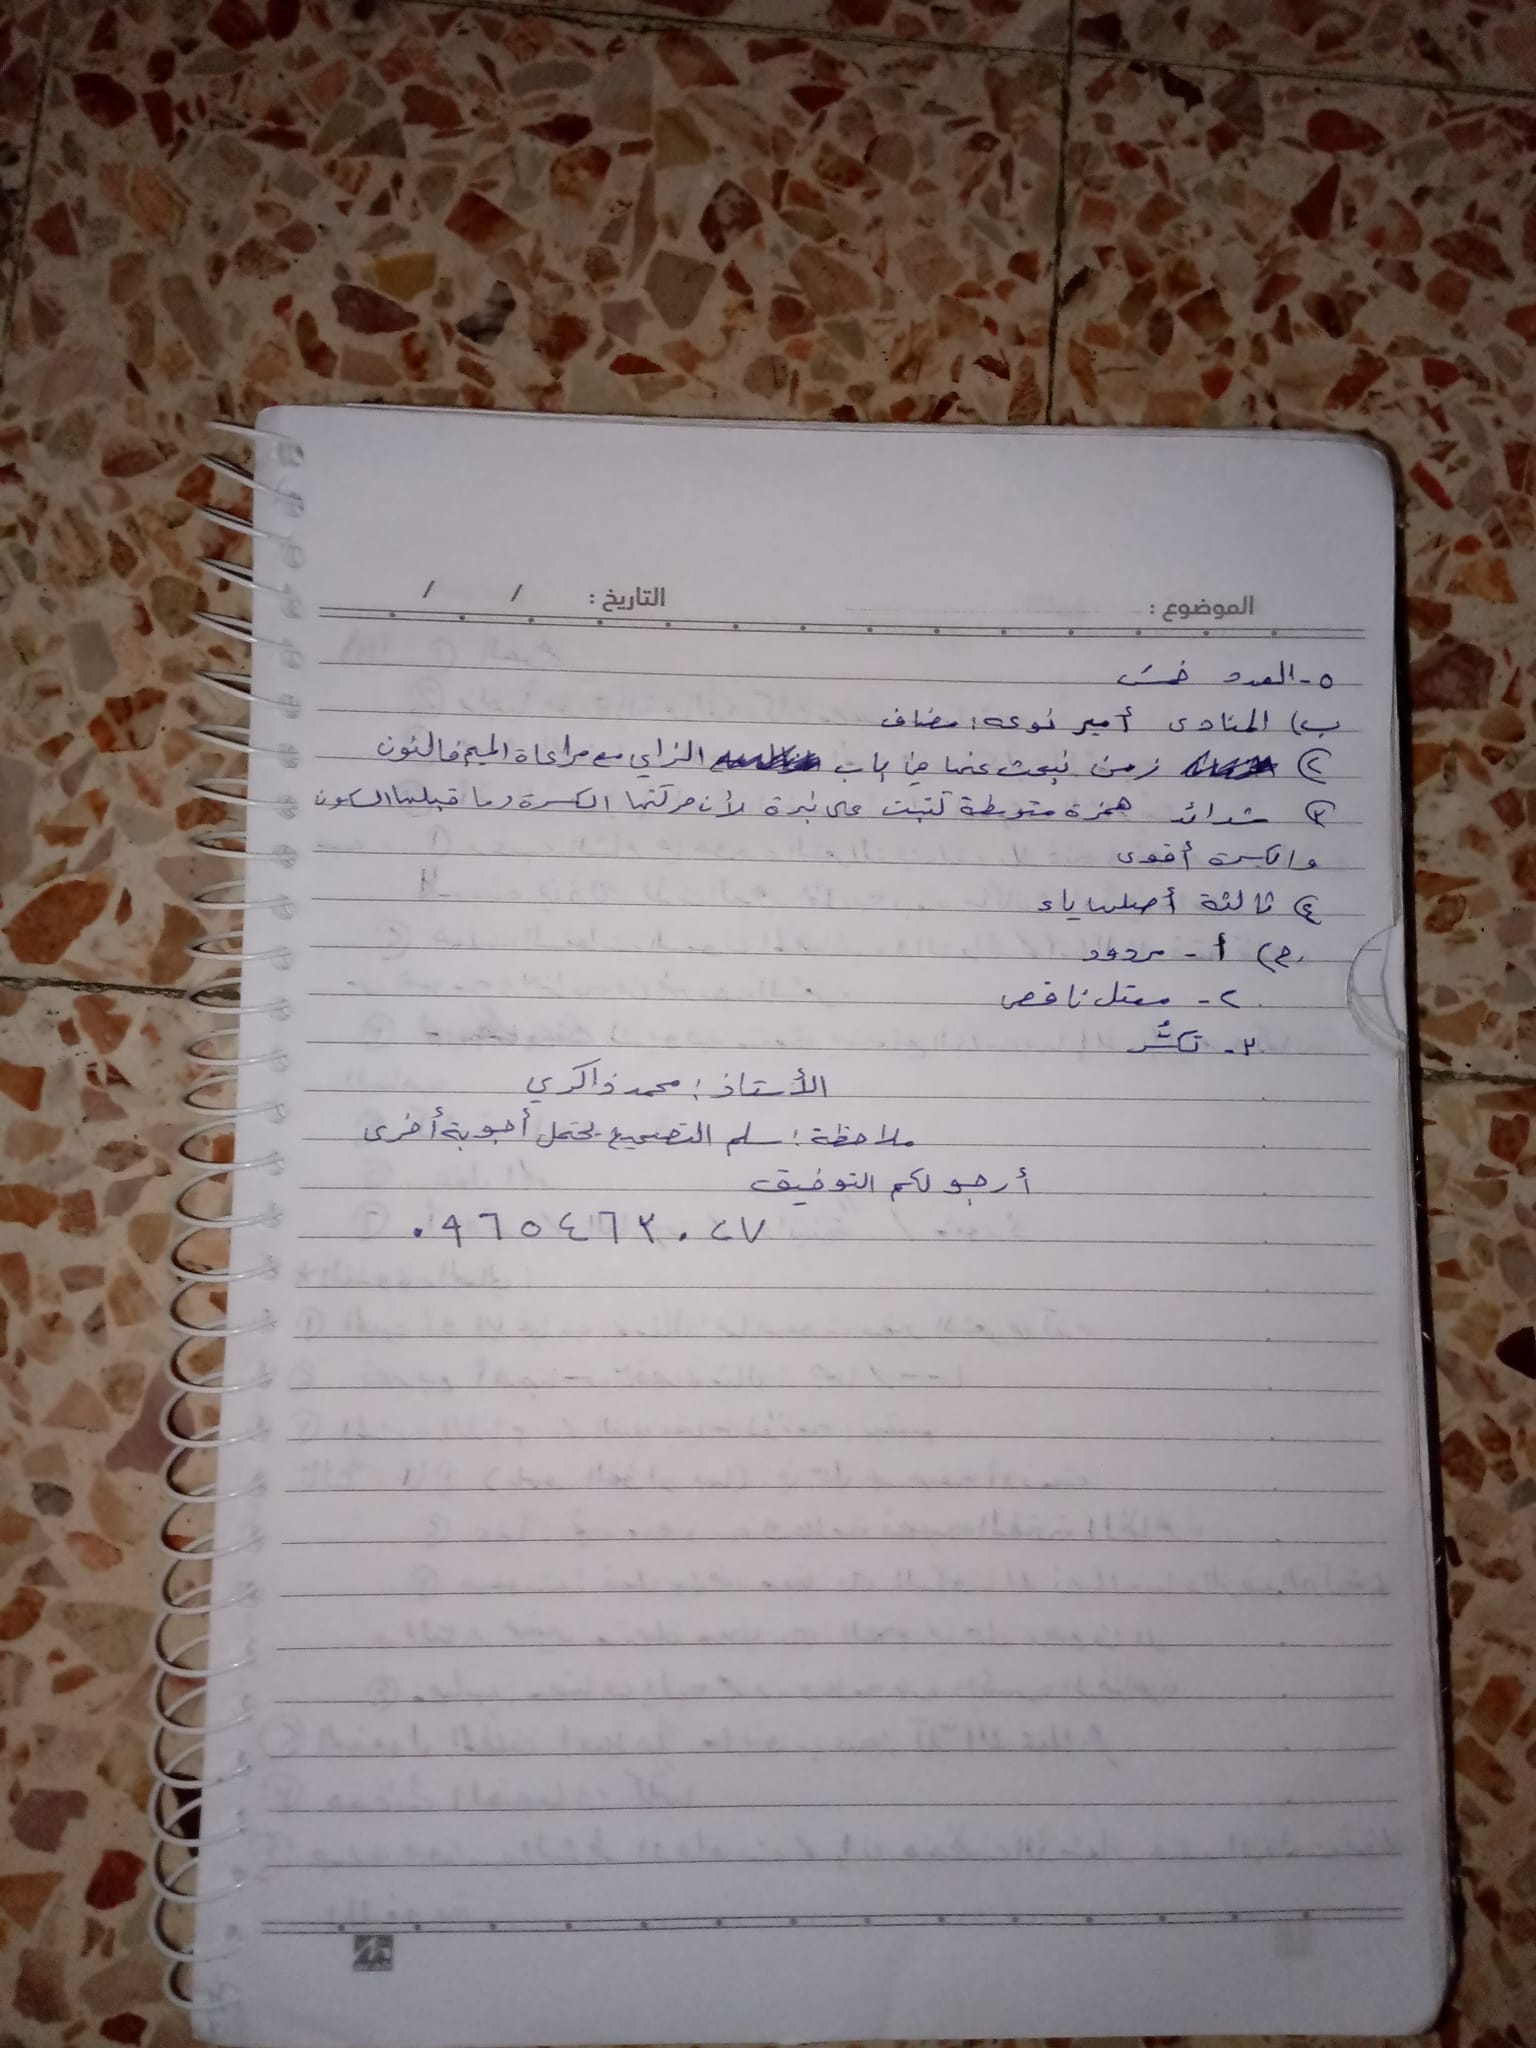 الموضوع : التاريخ : / /
٥- العدد خمسَ
ب) المنادى أمير نوعه: مضاف
٢) زمن نبحث عنها في باب الزاي مع مراعاة الميم فالنون
٣) شدائد همزة متوسطة كتبت على نبرة لأن حركتها الكسرة وما قبلها السكون
والكسرة أقوى
٤) ثالثة أصلها ياء
ج) ١- مردود
٢- معتل ناقص
٣- تكسُّر
الأستاذ: محمد ذاكري
ملاحظة: سلم التصحيح يحتمل أجوبة أخرى
أرجو لكم التوفيق
٠٩٦٥٤٦٣٠٢٧